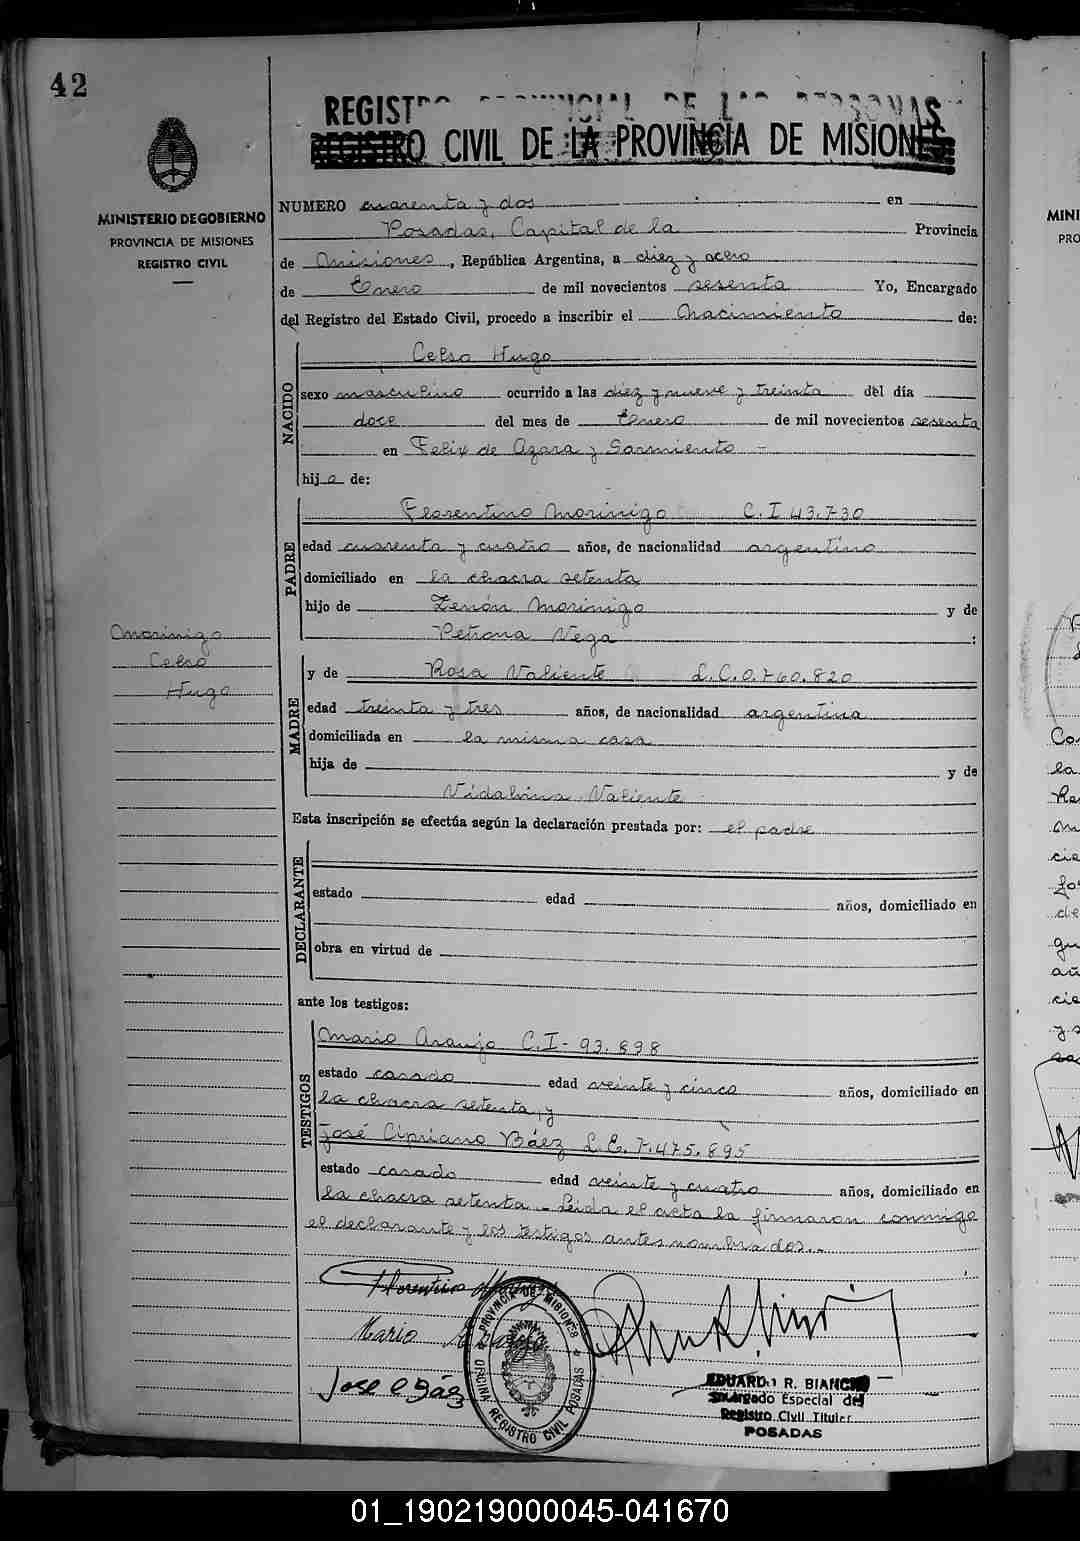 42
REGISTRO PROVINCIAL DE LAS PERSONAS
REGISTRO CIVIL DE LA PROVINCIA DE MISIONES
MINISTERIO DE GOBIERNO
PROVINCIA DE MISIONES
REGISTRO CIVIL
NUMERO cuarenta y dos en
Posadas, Capital de la Provincia
de Misiones, República Argentina, a diez y ocho
de Enero de mil novecientos sesenta Yo, Encargado
del Registro del Estado Civil, procedo a inscribir el Nacimiento de:
NACIDO
Celso Hugo
sexo masculino ocurrido a las diez y nueve y treinta del día
doce del mes de Enero de mil novecientos sesenta
en Felix de Azara y Sarmiento -
hijo de:
PADRE
Florentino Morinigo C. I 43.730
edad cuarenta y cuatro años, de nacionalidad argentino
domiciliado en la chacra setenta
hijo de Zenón Morinigo y de
Petrona Vega :
Morinigo
Celso
Hugo
MADRE
y de Rosa Valiente L.C.0.760.820
edad treinta y tres años, de nacionalidad argentina
domiciliada en la misma casa
hija de y de
Vidalvina Valiente
Esta inscripción se efectúa según la declaración prestada por: el padre
DECLARANTE
estado edad años, domiciliado en
obra en virtud de
ante los testigos:
TESTIGOS
Mario Araujo C.I- 93.898
estado casado edad veinte y cinco años, domiciliado en
la chacra setenta, y
José Cipriano Báez L.E. 7.475.895
estado casado edad veinte y cuatro años, domiciliado en
la chacra setenta. - Leida el acta la firmaron conmigo
el declarante y los testigos antes nombrados. -
Florentino Morinigo
Mario Araujo
Jose C Báez
PROVINCIA DE MISIONES
OFICINA REGISTRO CIVIL POSADAS
EDUARDO R. BIANCHI
Encargado Especial del
Registro Civil Titular
POSADAS
MINI
PRO
Co
la
Re
cia
de
gu
añ
cie
y s
01_190219000045-041670